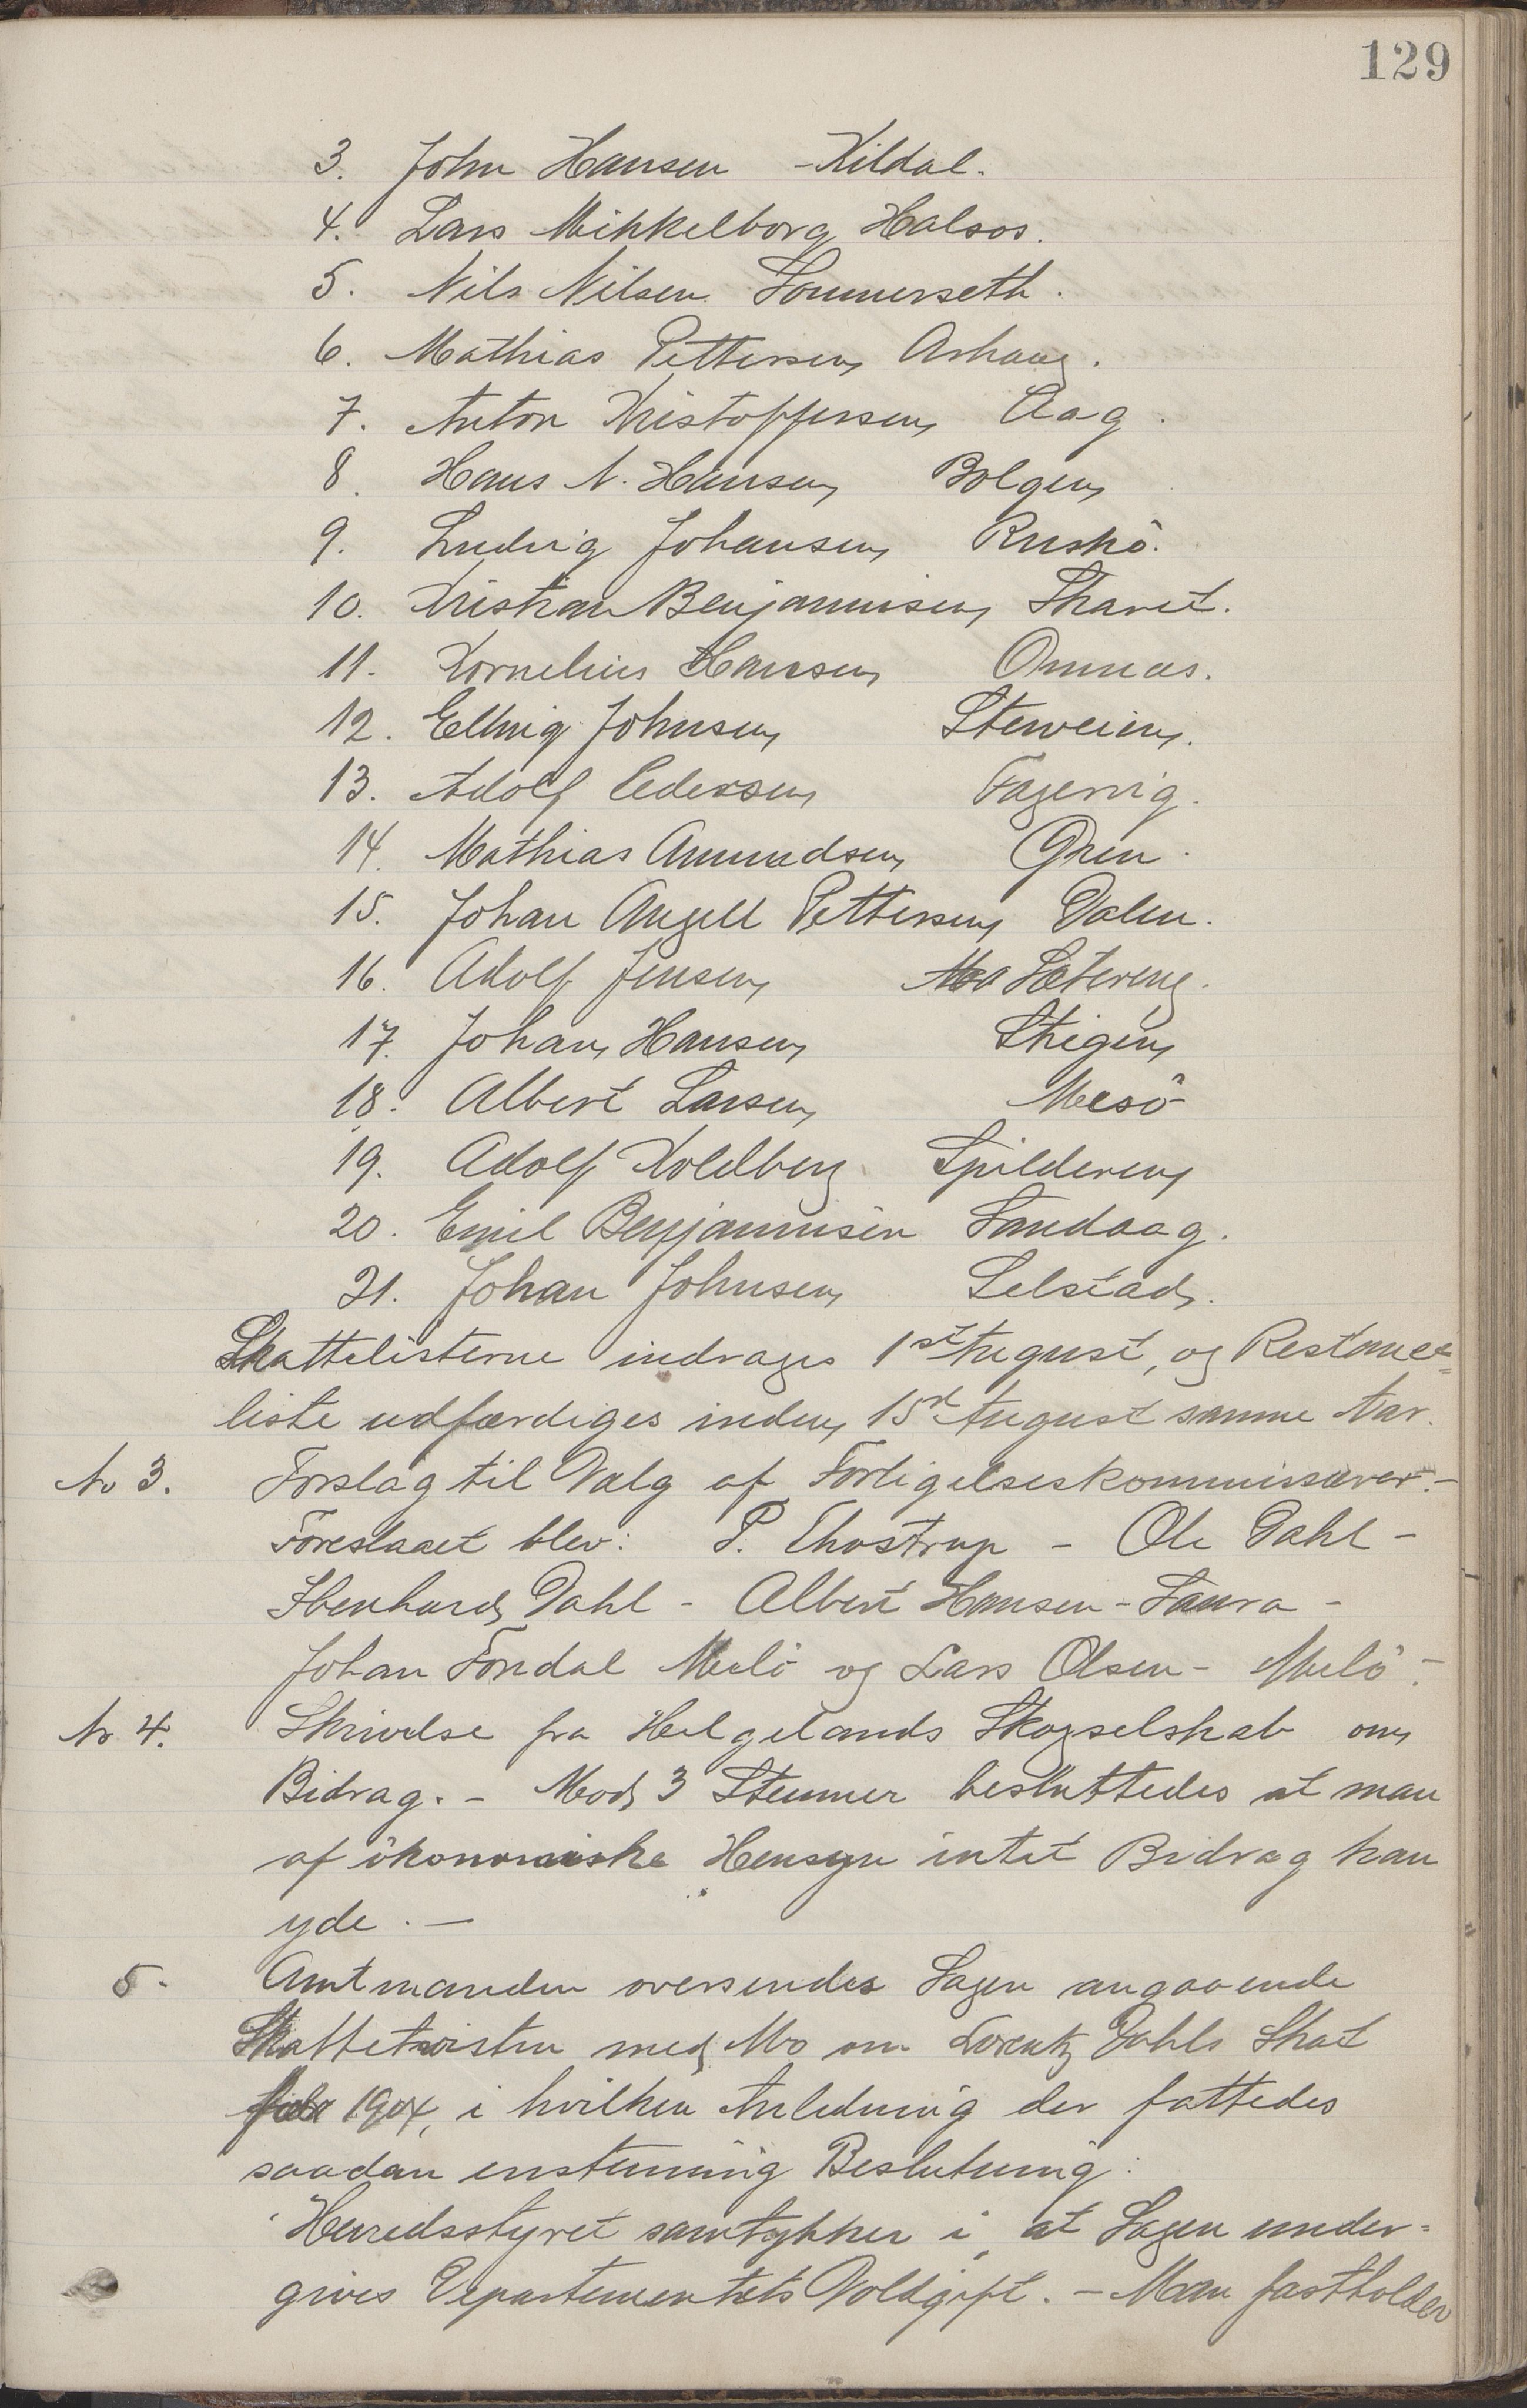 129
3. John Hansen - Kildal.
4. Lars Mikkelborg Halsos.
5. Nils Nilsen Sommerseth.
6. Mathias Pettersen Arhaug.
7. Anton Kristoffersen Aag.
8. Hans N. Hansen Bolgen
9. Ludvig Johansen Ruskö.
10. Kristian Benjaminsen Skavet.
11. Kornelius Hansen Omnes.
12. Elling Johnsen Stenveien.
13. Adolf Pedersen Fagervig.
14. Mathias Amundsen Gren.
15. Johan Angell Pettersen Dalen.
16. Adolf Jensen Sætereng.
17. Johan Hansen Stigen
18. Albert Larsen Mesö
19. Adolf Koldberg Spilderen
20. Emil Benjaminsen Sandaag.
21. Johan Johnsen Selstad.
Skattelisterne indrages 1st August, og Restance=
liste udfærdiges inden 15de August samme Aar.
No 3. Forslag til Valg af Forligelseskommissærer. -
Foreslaaet blev: P. Thostrup - Ole Dahl -
Ebenhard Dahl - Albert Hansen - Saura -
Johan Fondal Melö og Lars Olsen - Melö -.
No 4. Skrivelse fra Helgelands Skogselskab om
Bidrag. - Mod 3 Stemmer besluttedes at man
af ökonomiske Hensyn intet Bidrag kan
yde. -
5. Amtmanden oversender Sagen angaaende
Skattetvisten med Mo om Lorentz Dahls Skat
for 1904, i hvilken Anledning der fattedes
saadan enstemmig Beslutning:
"Herredsstyret samtykker i, at Sagen under=
gives Departementets Voldgift. - Man fastholder